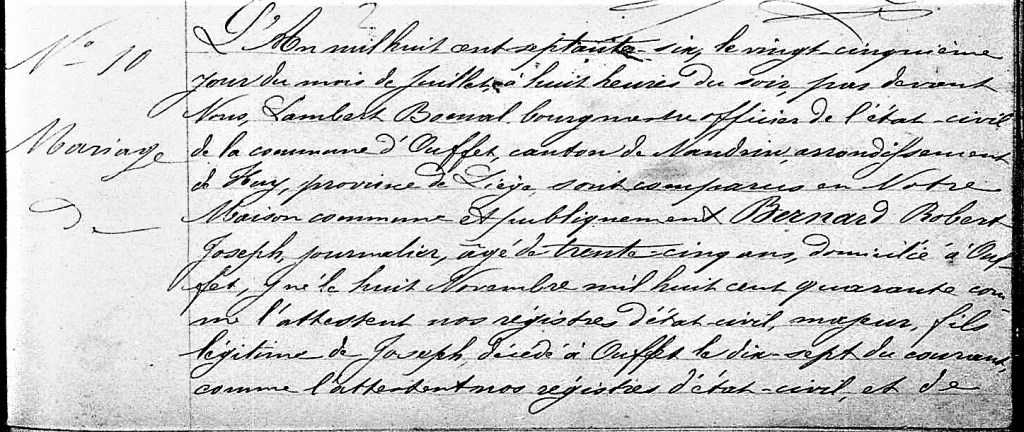 N° 10
Mariage
De
L'An mil huit cent septante-six, le vingt cinquième
jour du mois de Juillet, à huit heures du soir, par devant
Nous, Lambert Boenal, bourgmestre officier de l'état-civil
de la commune d'Ouffet, canton de Nandrin, arrondissement
de Huy, province de Liége, sont comparus en Notre
Maison commune et publiquement Bernard Robert
Joseph, journalier, âgé de trente-cinq ans, domicilié à Ouf-
fet, y né le huit Novembre mil huit cent quarante com-
me l'attestent nos régistres d'état-civil, majeur, fils
légitime de Joseph, décédé à Ouffet le dix-sept du courant,
comme l'attestent nos régistres d'état-civil, et de